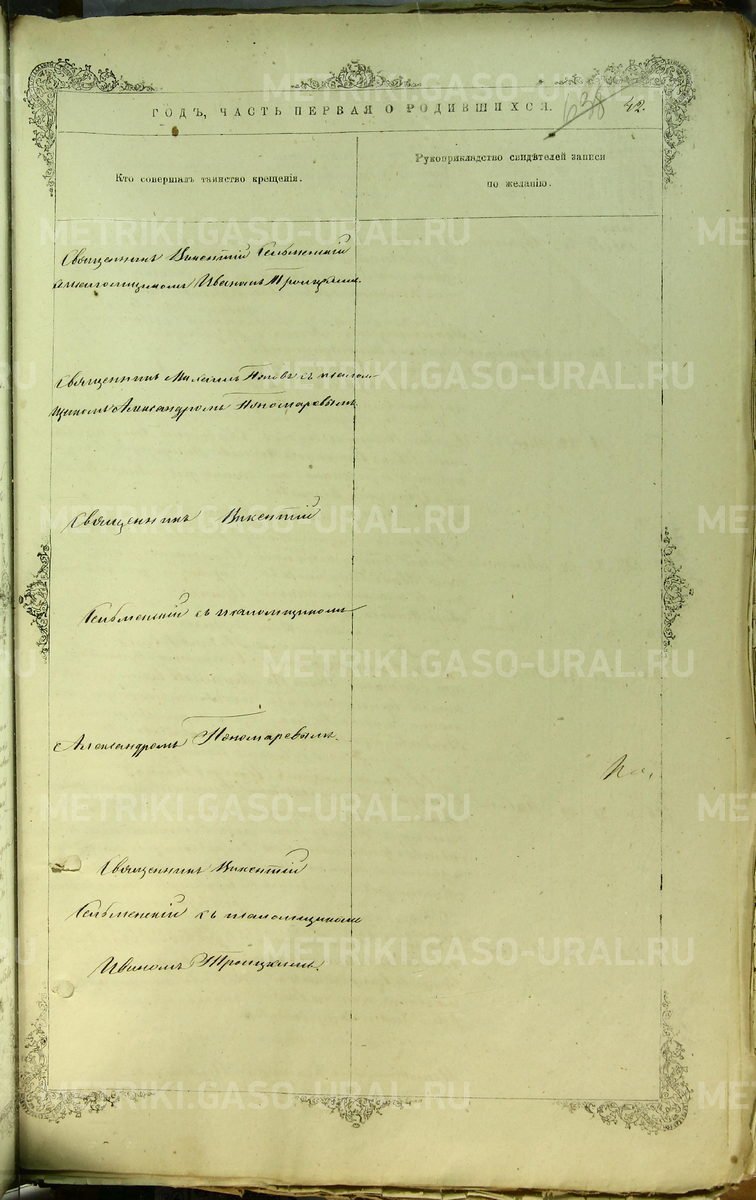 ГОДЪ, ЧАСТЬ ПЕРВАЯ О РОДИВШИХСЯ.
638 42.
Кто совершалъ таинство крещенія.
Рукоприкладство свидѣтелей записи
по желанію.
Священникъ Викентій
Иваномъ Троицкимъ.
Священникъ Михаилъ Поповъ съ псалом-
щикомъ Александромъ Пономаревымъ.
Священникъ Викентій
съ псаломщикомъ
Александромъ Пономаревымъ.
Священникъ Викентій
съ псаломщикомъ
Иваномъ Троицкимъ.
METRIKI.GASO-URAL.RU